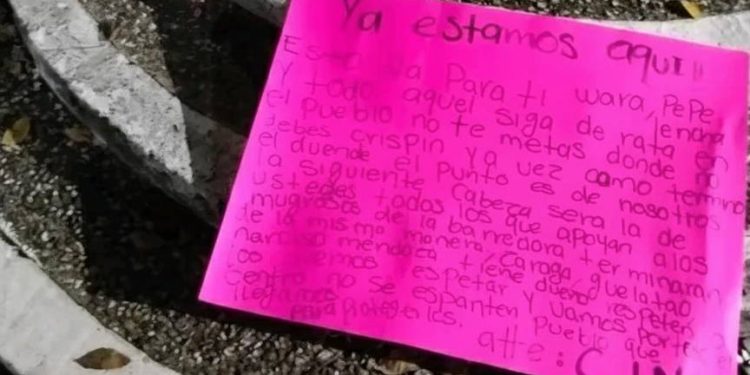 Ya estamos aqui!!
Esto va Para ti wara, PePe, lencha
Y todo aquel siga de rata en
el Pueblo no te metas donde no
debes crispin ya vez como termino
el duende el Punto es de nosotros
la siguiente cabeza sera la de
ustedes todos los que apoyan alas
mugrosos de la barredora terminaran
de la misma manera, Caraga, guelatao
narciso mendoza tiene dueño respeten
espetar y vamos Por
centro no se espanten Pueblo que
llegamos
Para Protegerlos.
atte: